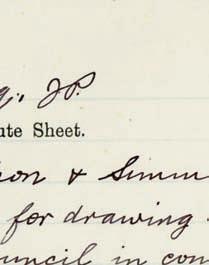 J.P.
ute Sheet.
son & Simm
for drawing
ouncil in con